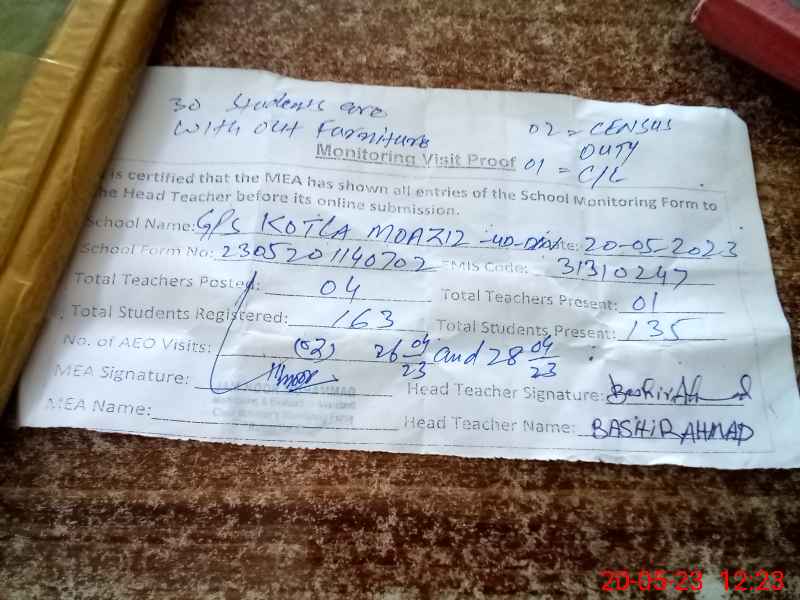 30 students are
with out Farniture
02 = CENSUS
DUTY
01 = C/L
Monitoring Visit Proof
is certified that the MEA has shown all entries of the School Monitoring Form to
he Head Teacher before its online submission.
School Name: GPS KOTLA MOAZIZ Date: 20-05-2023
School Form No: 2305201140702 EMIS Code: 31310247
Total Teachers Posted: 04 Total Teachers Present: 01
Total Students Registered: 163 Total Students Present: 135
No. of AEO Visits: (02) 26 04/23 and 28 04/23
MEA Signature: Head Teacher Signature: Bashir Ahmad
MEA Name: Head Teacher Name: BASHIR AHMAD
20-05-23 12:23